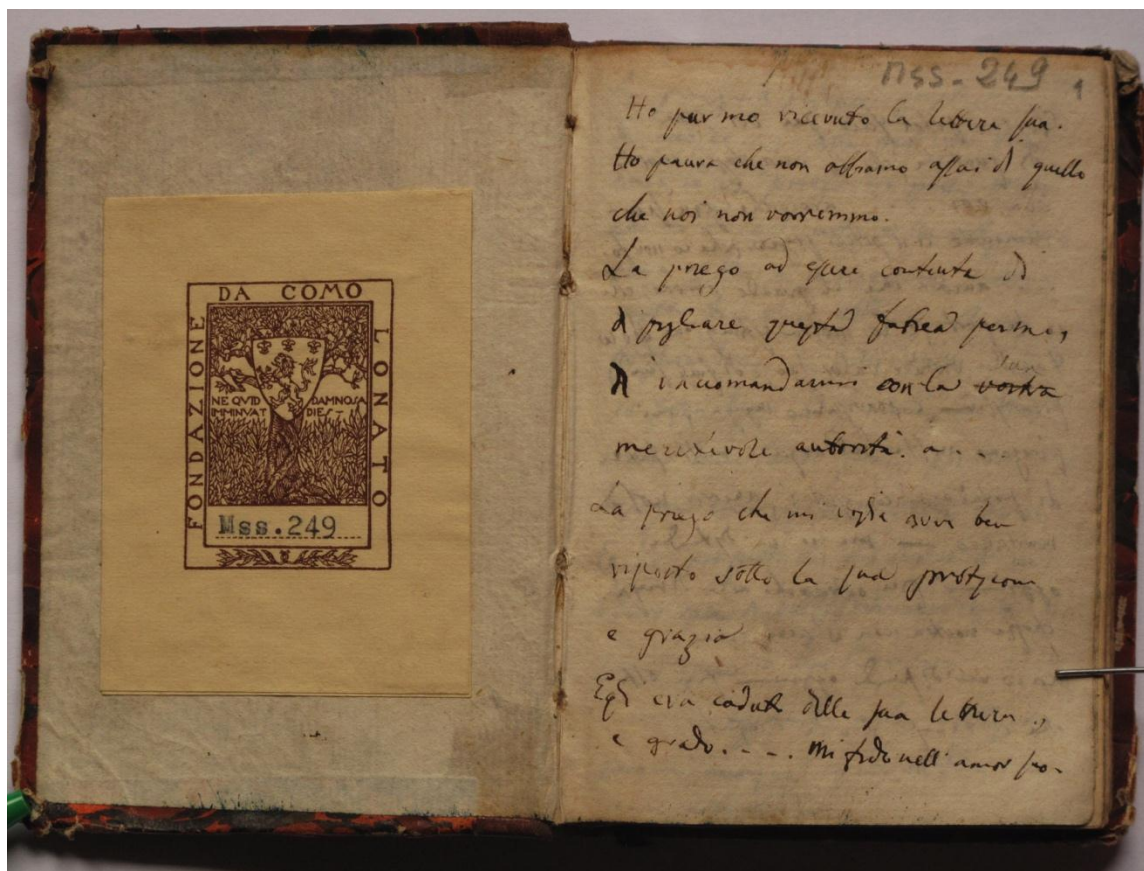 DA COMO
FONDAZIONE
LONATO
NE QVID DAMNOSA
IMMINVAT DIES
Mss.249
Mss-249 1
Ho pur mo ricevuto la lettera sua.
Ho paura che non abbiamo assai di quello
che noi non vorremmo.
La priego ad essere contenta di
di pigliare questa fatica per me,
sua
di raccomandarmi con la vostra
meritevole autorità. a..
La priego che mi voglia aver ben
riposto sotto la sua protezione
e grazia
Egli era caduto della sua lettera,
e grado. - - . Mi fido nell' amor suo.